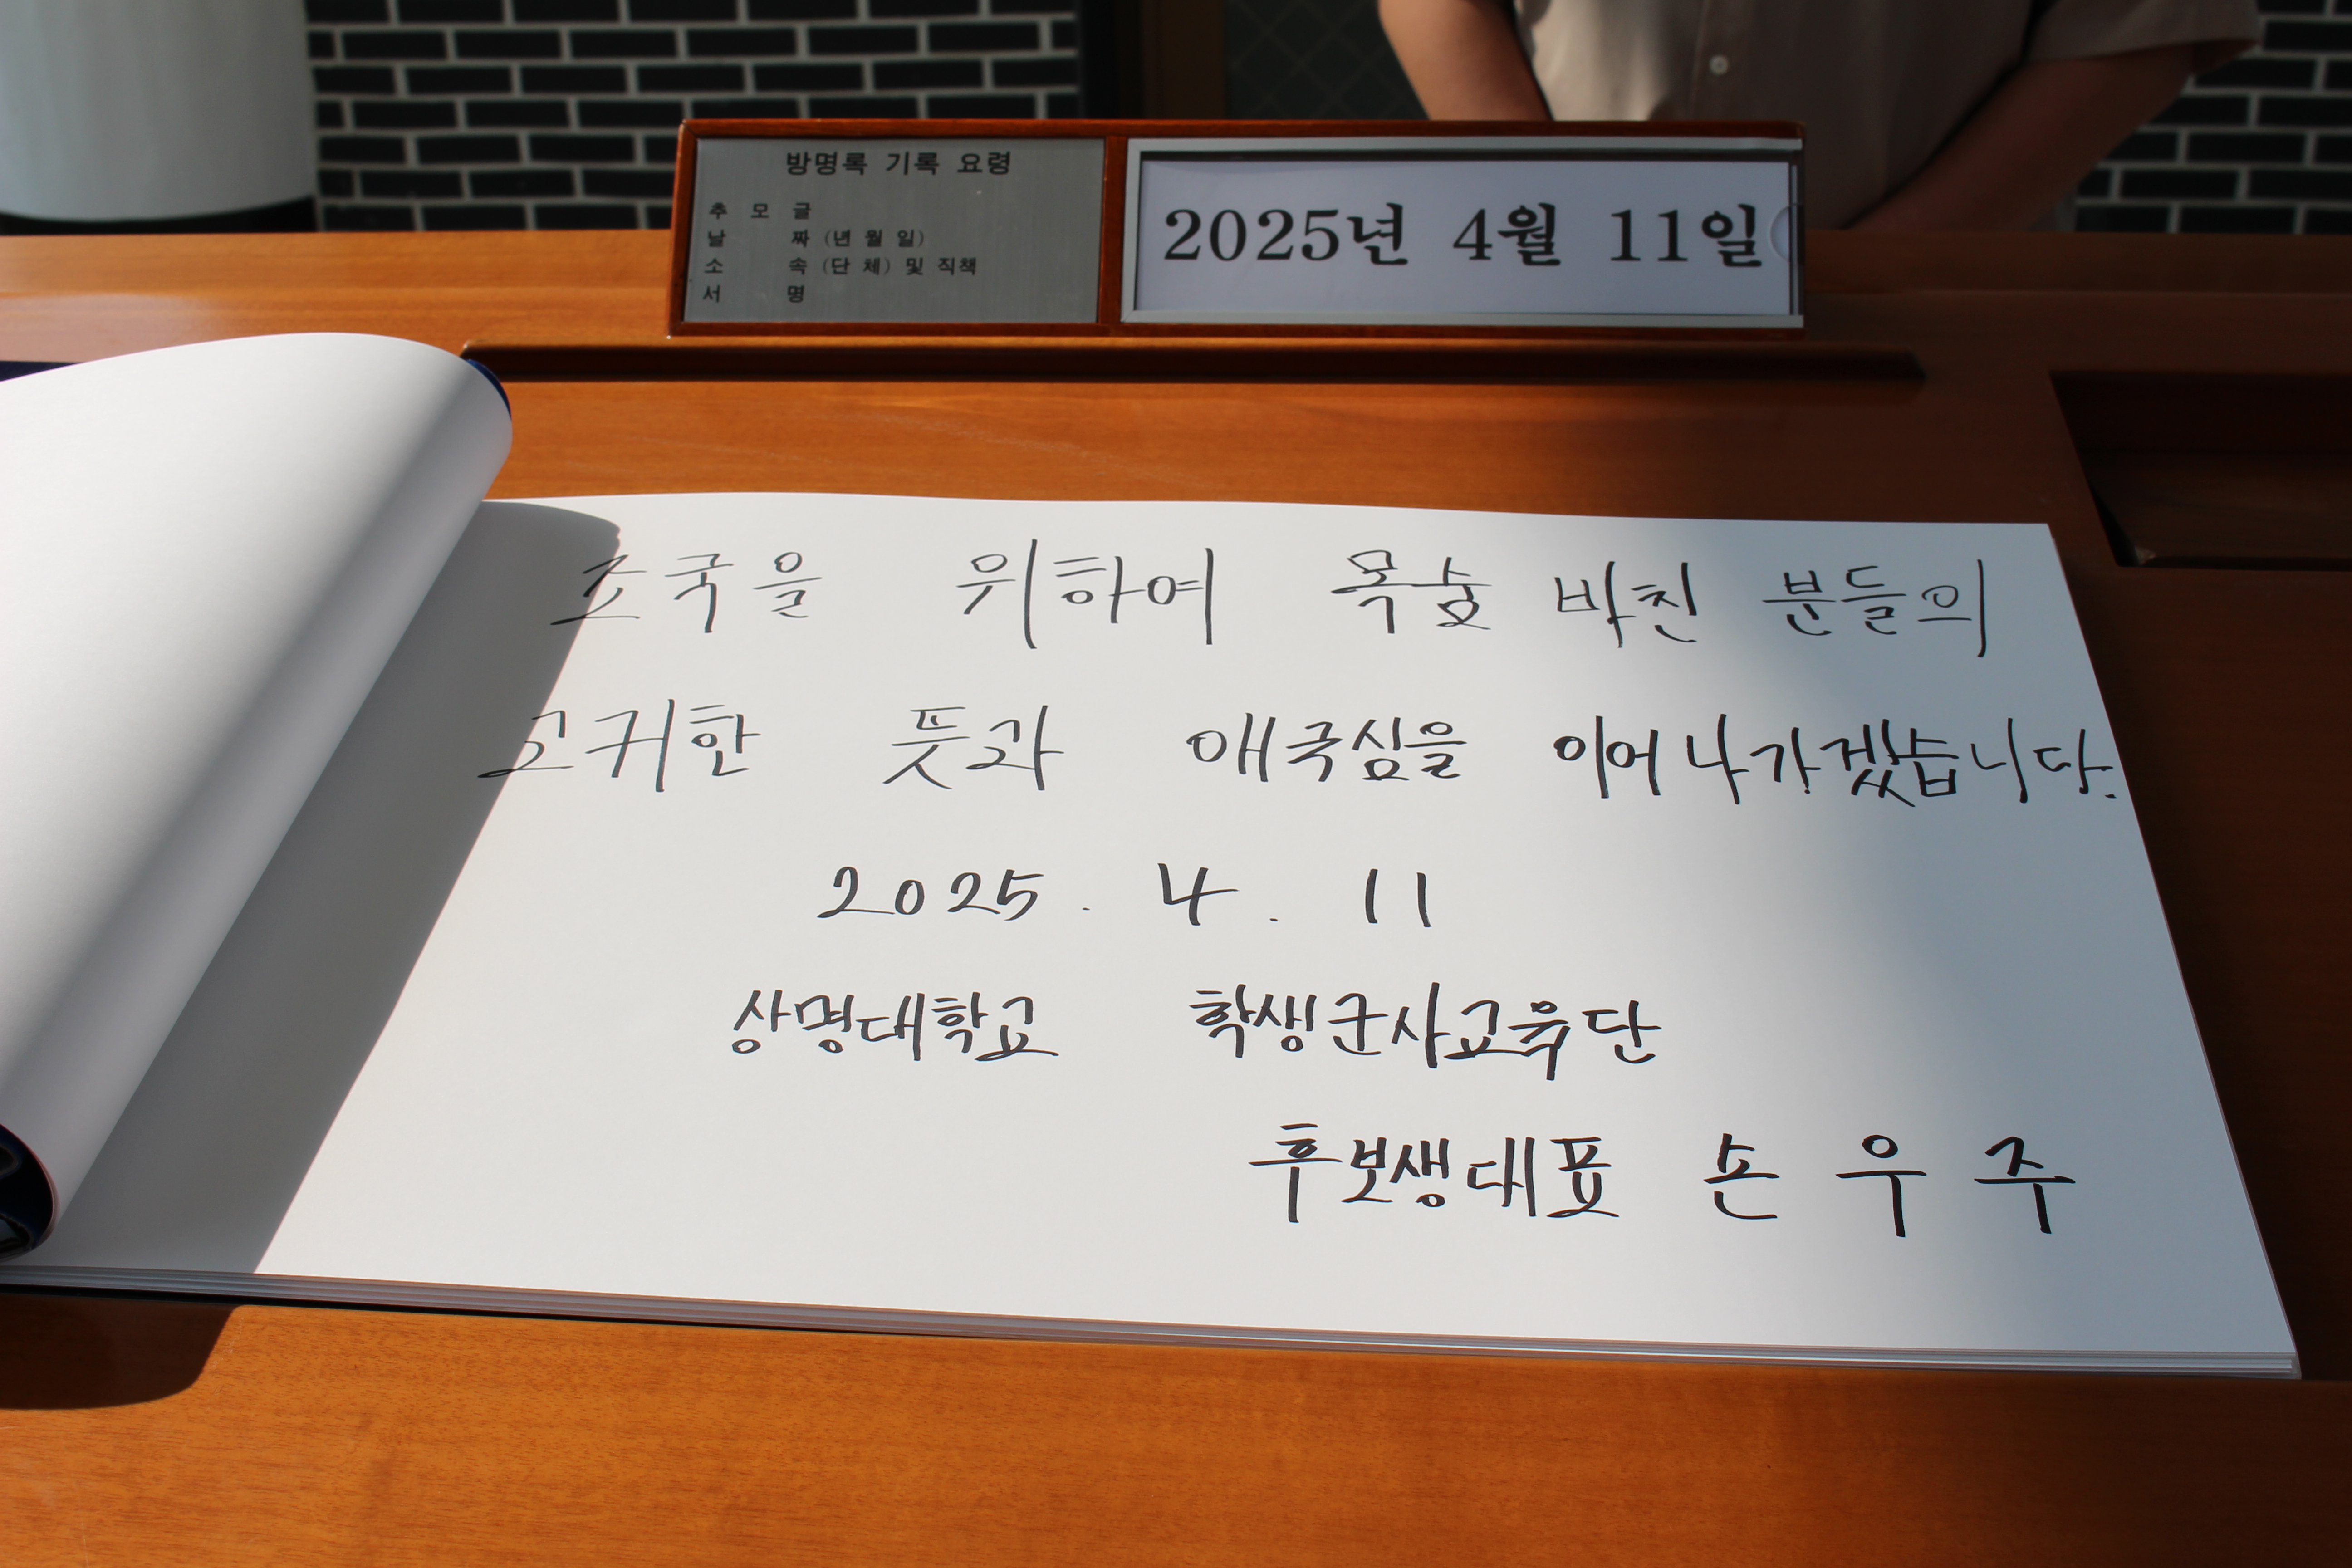 방명록 기록 요령
추 모 글
날 짜 (년 월 일)
소 속 (단 체) 및 직책
서 명
2025년 4월 11일
조국을 위하여 목숨 바친 분들의
고귀한 뜻과 애국심을 이어나가겠습니다.
2025. 4. 11
상명대학교 학생군사교육단
후보생대표 손우주